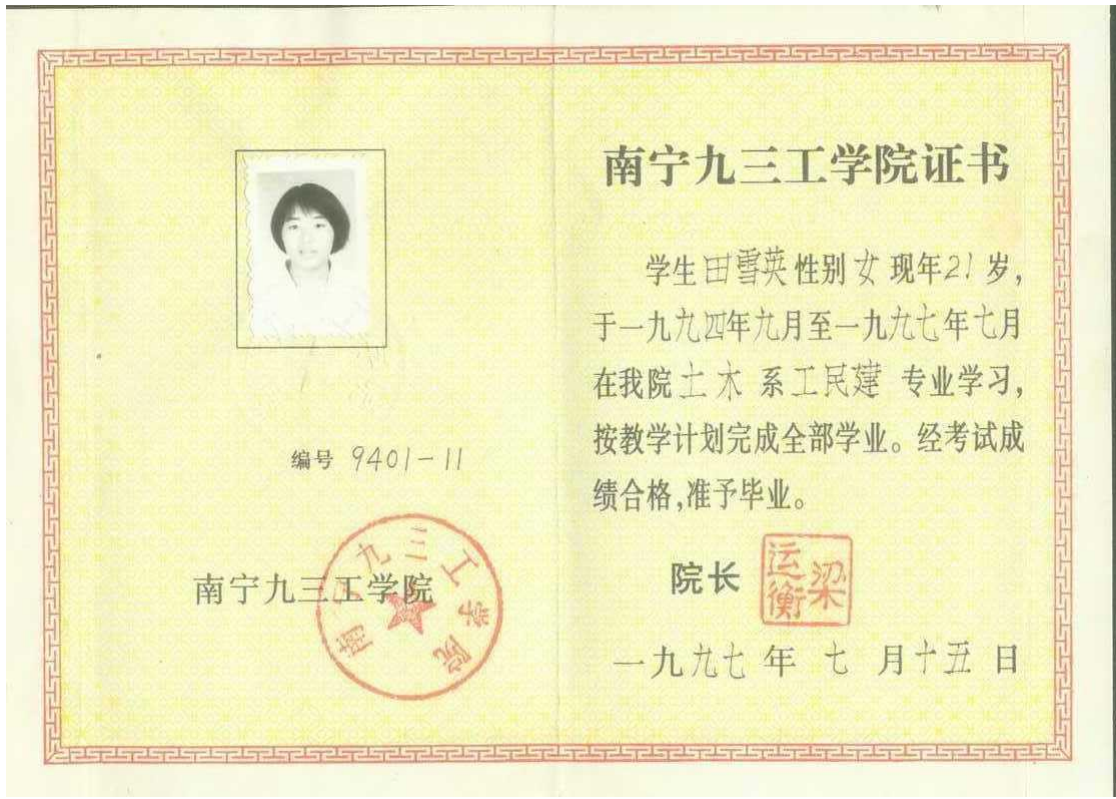 编号 9401-11
南宁九三工学院
南宁九三工学院
南宁九三工学院证书
学生田雪英性别女现年21岁,
于一九九四年九月至一九九七年七月
在我院土木系工民建 专业学习,
按教学计划完成全部学业。经考试成
绩合格,准予毕业。
院长
梁运衡
一九九七年七月十五日